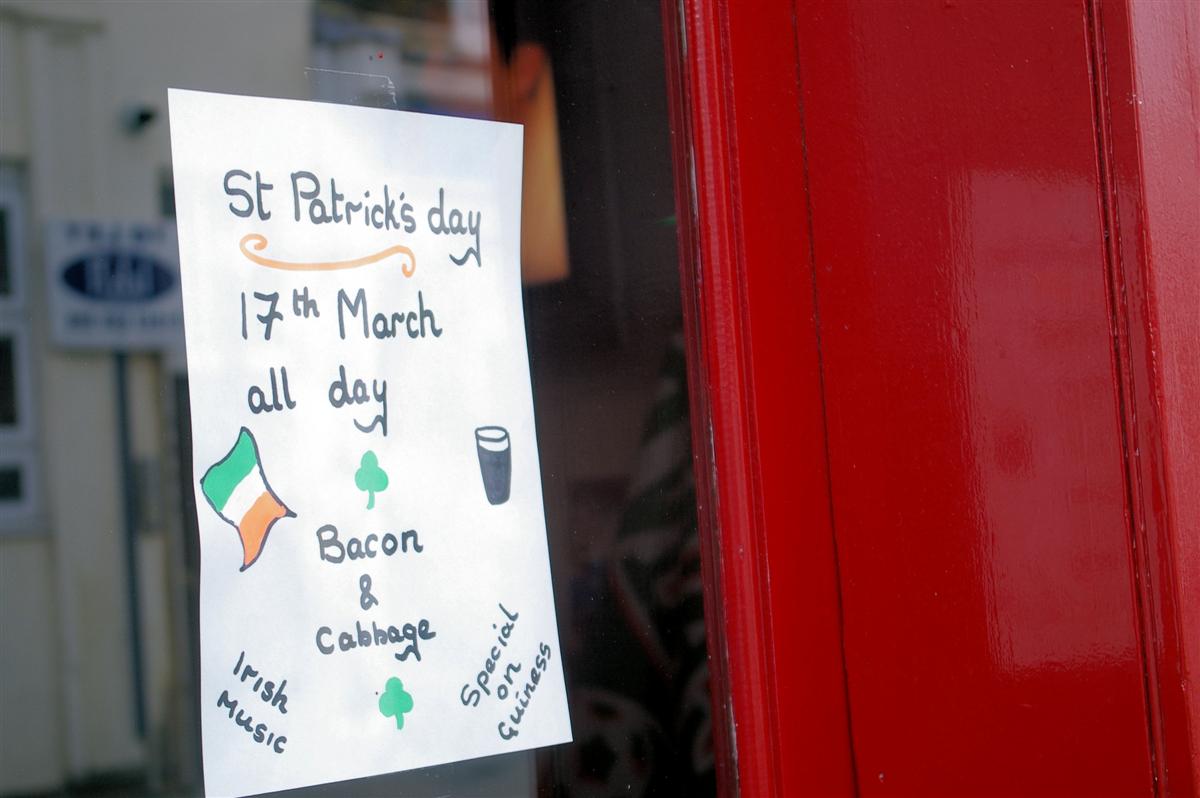 St Patrick's day
17th March
all day
Bacon
&
Cabbage
Irish
Music
Special
on
Guiness